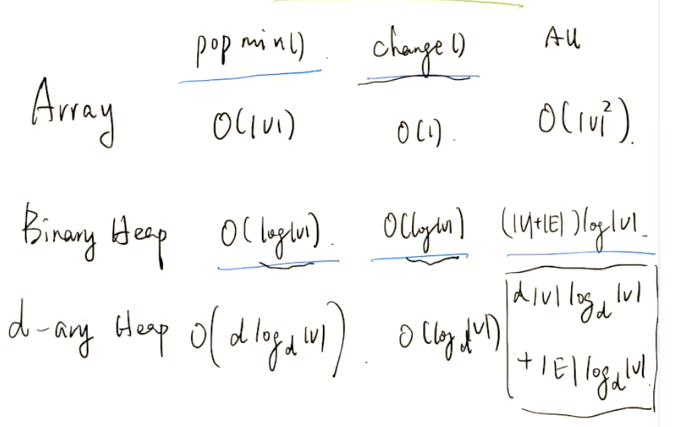 popmin() change() All
Array O(|V|) O(1). O(|V|²).
Binary Heap O(log|V|). O(log|V|) (|V|+|E|)log|V|
d-ary Heap O(d log_d |V|). O(log_d |V|) d|V| log_d |V|
+|E| log_d |V|